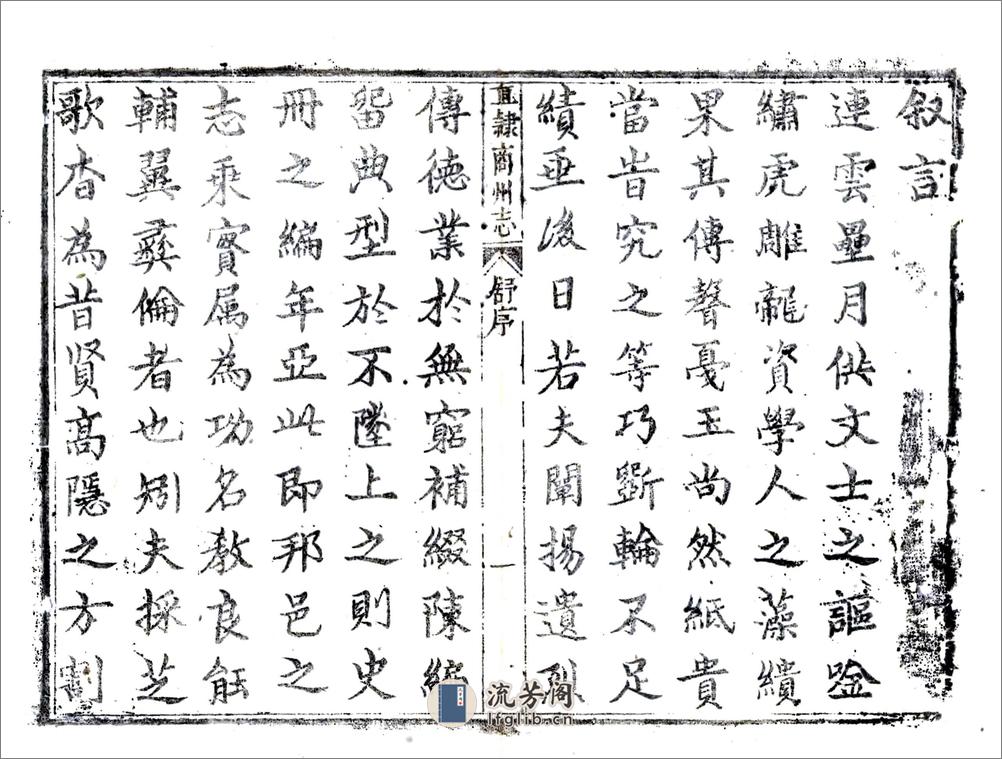 叙言
連雲壘月供文士之謳唫
繡虎雕龍資學人之藻繢
果其傳聲戞玉尚然紙貴
當旹究之等巧斵輪不足
績垂後日若夫闡揚遺烈
直隷商州志 舒序 一
傳德業於無窮補綴陳編
畱典型於不墜上之則史
冊之編年亞此即邦邑之
志乘實属為功名教良能
輔翼彝倫者也矧夫採芝
歌杳為昔賢高隱之方割
流芳阁
lfglib.cn